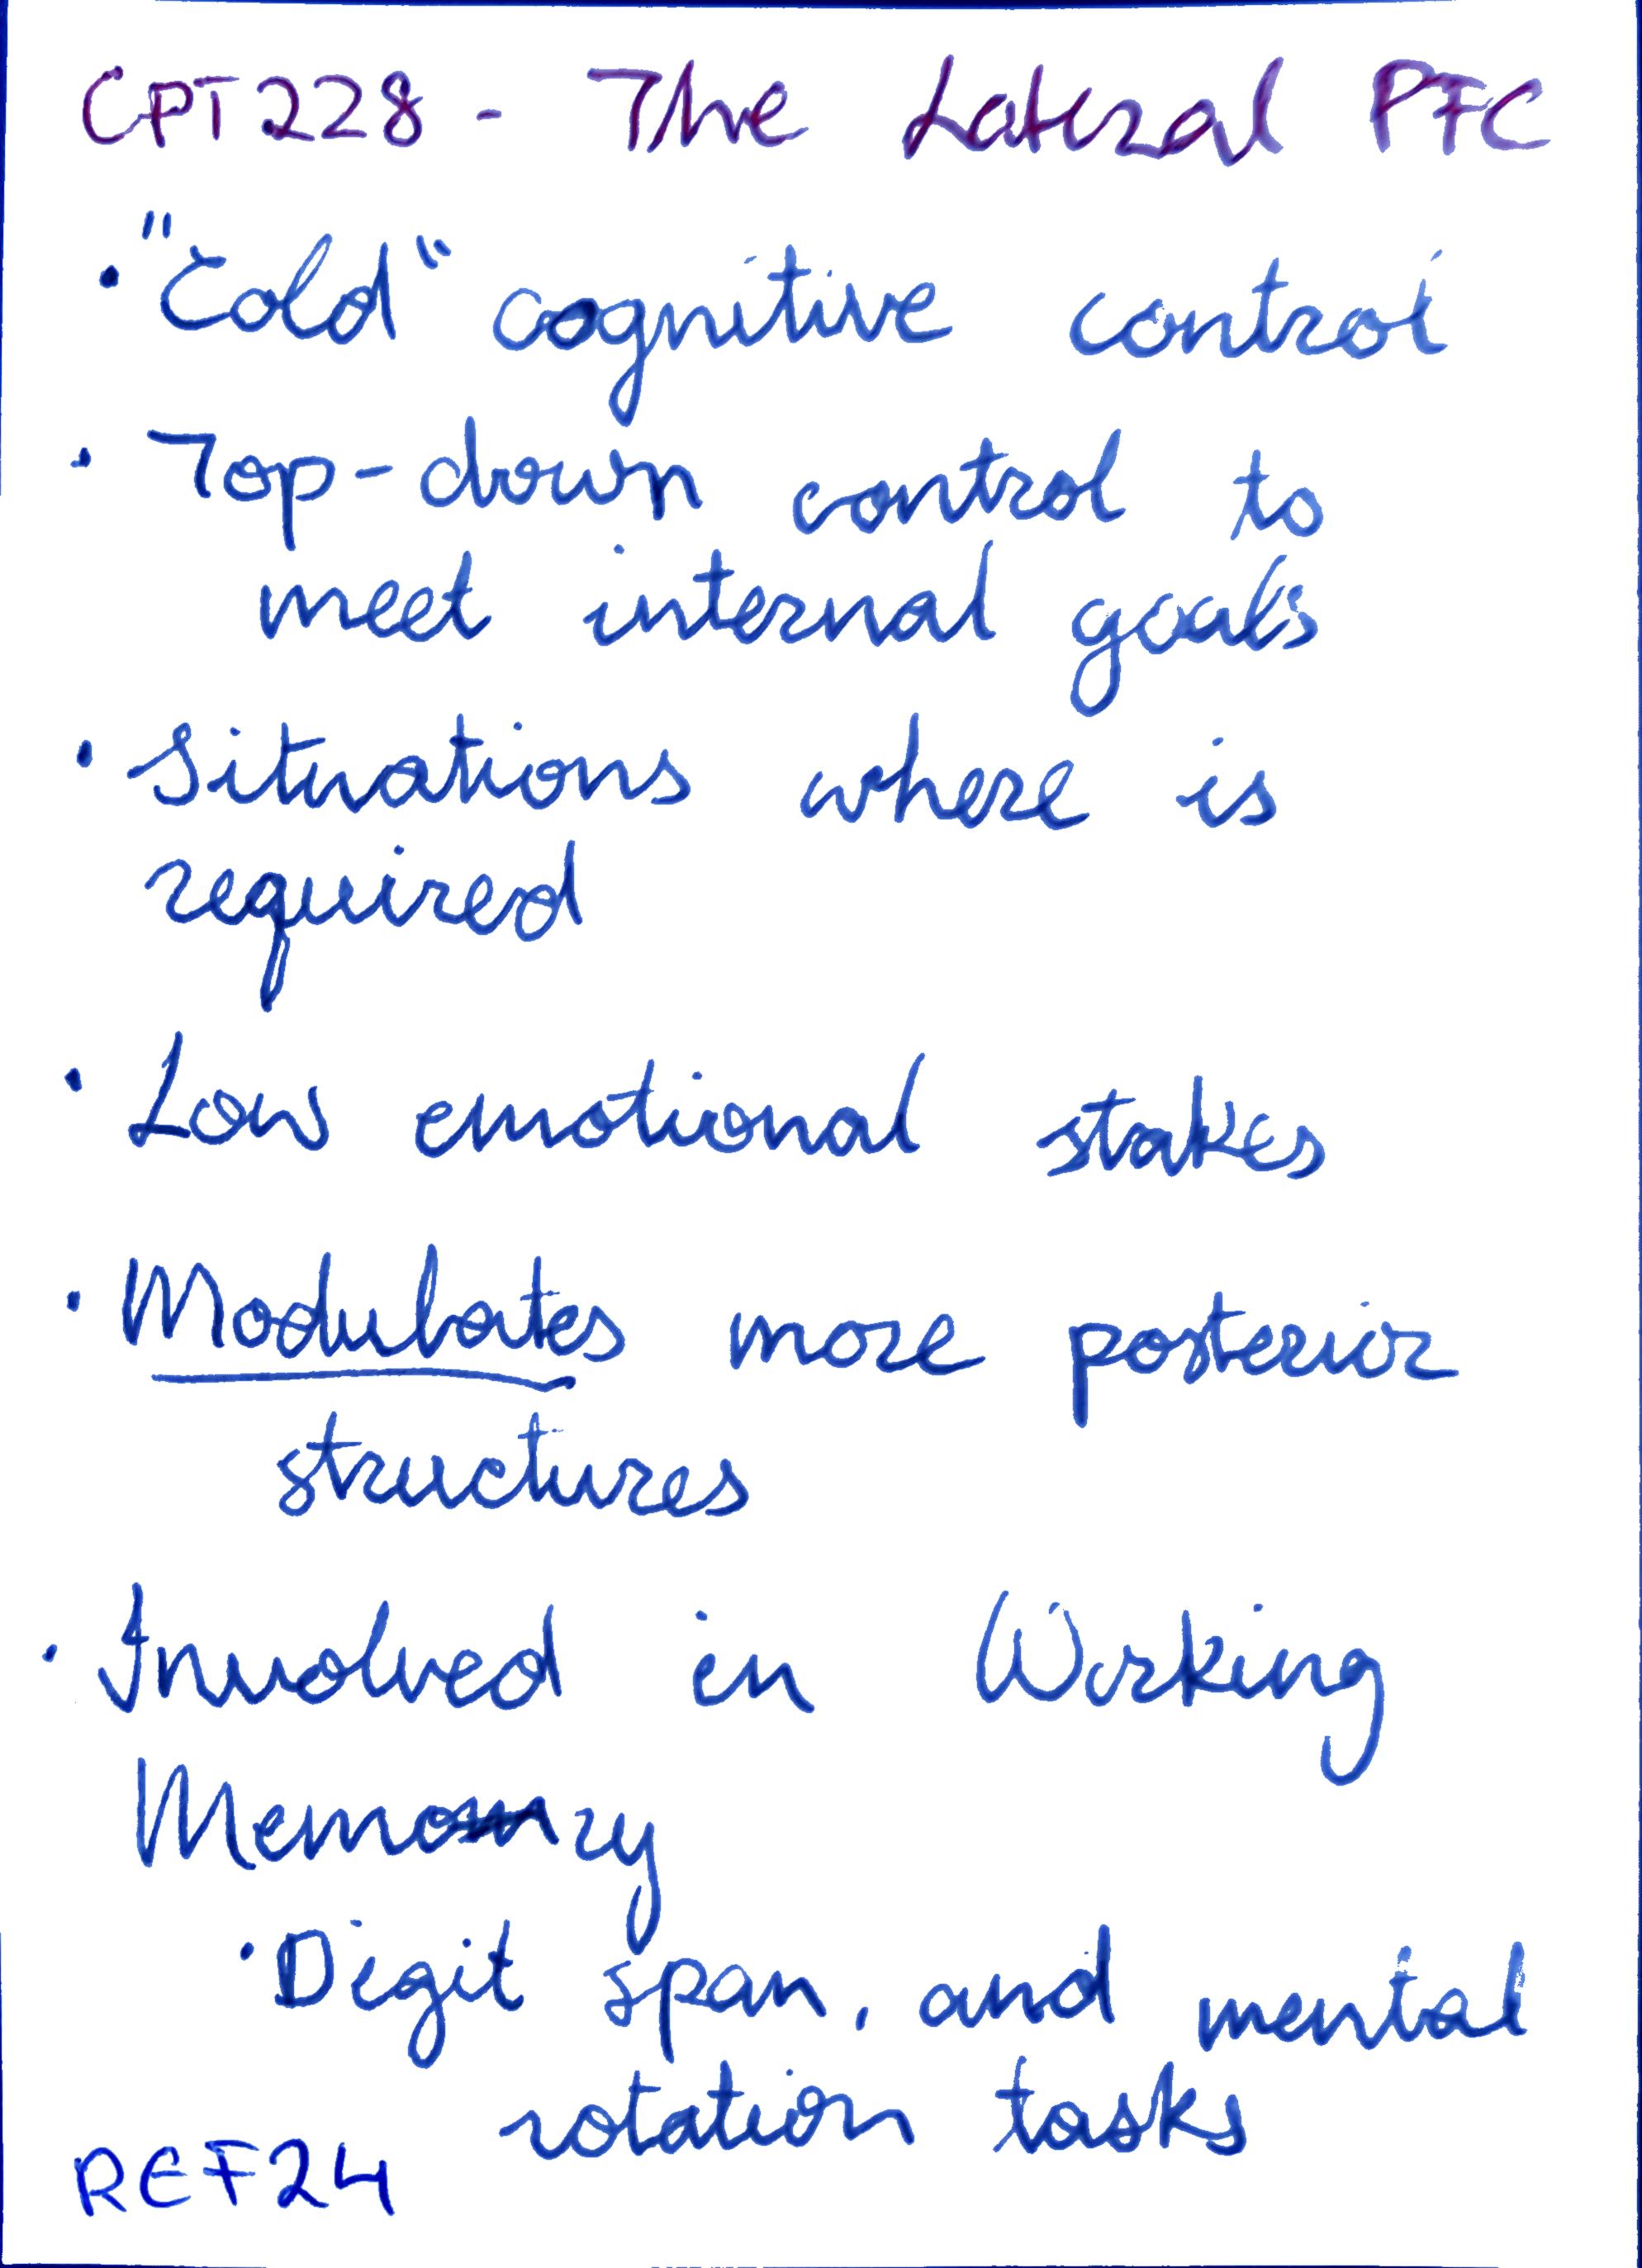 CPT228 - The Lateral PFC
• "Cold" cognitive control
• Top-down control to
meet internal goals
• Situations where is
required
• Low emotional stakes
• Modulates more posterior
structures
• Involved in Working
Memory
• Digit span, and mental
rotation tasks
REF24